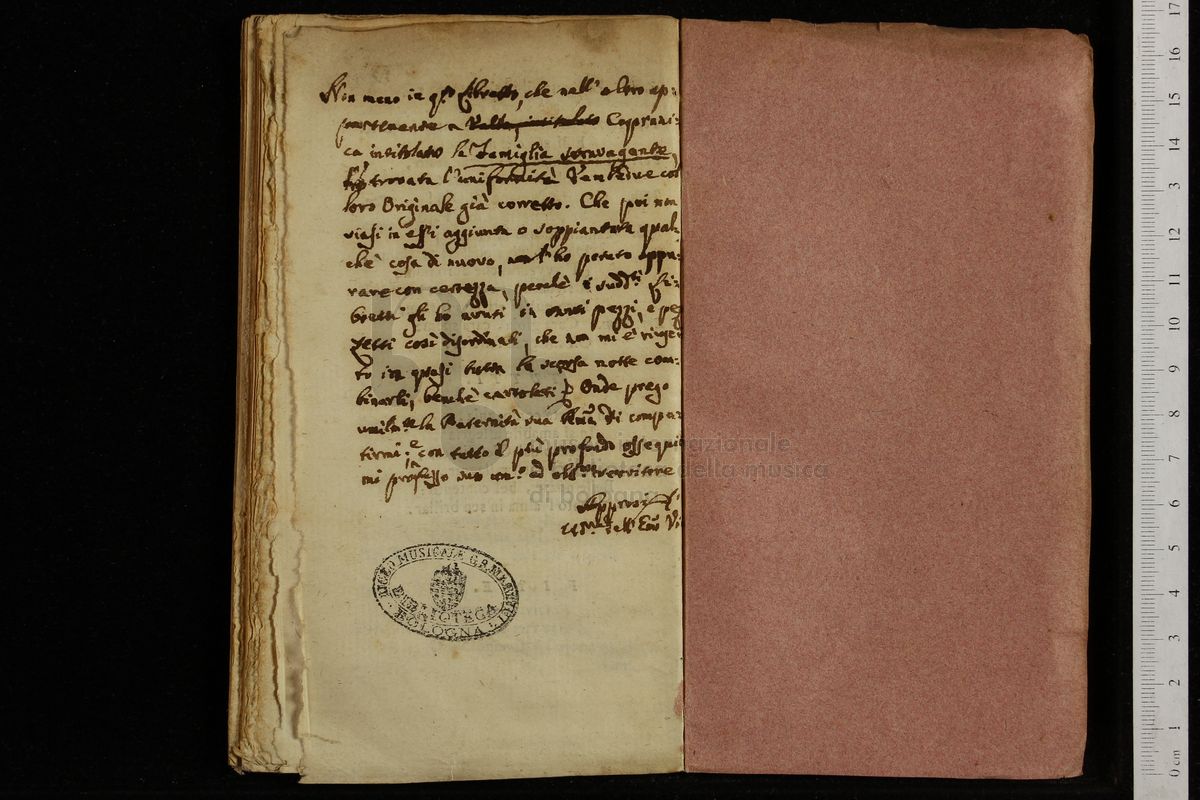 Non meno in q.to Libretto, che nell' altro ap:
partenente a Valle, intitolato Capprani:
ca intitolato la Famiglia stravagante,
hò trovata l'uniformità
loro Originale già corretto. Che poi non
siasi in essi aggiunta o soppiantata qual:
che cosa di nuovo, non l'ho potuto appu:
rare con certezza, perchè i sudd.ti Li:
bretti gli ho avuti in tanti pezzi, e pez
zetti così disordinati, che non mi è riusci
to in quasi tutta la scorsa notte com:
binarli, benchè cartolati. Onde prego
umilm.te la Paternità sua di compa:
tirmi: e con tutto il più profondo ossequio
mi professo suo um.o ed obb.mo servitore
LICEO MUSICALE
BIBLIOTECA
BOLOGNA
museo internazionale
e biblioteca della musica
di bologna
0 cm 1 2 3 4 5 6 7 8 9 10 11 12 13 14 15 16 17